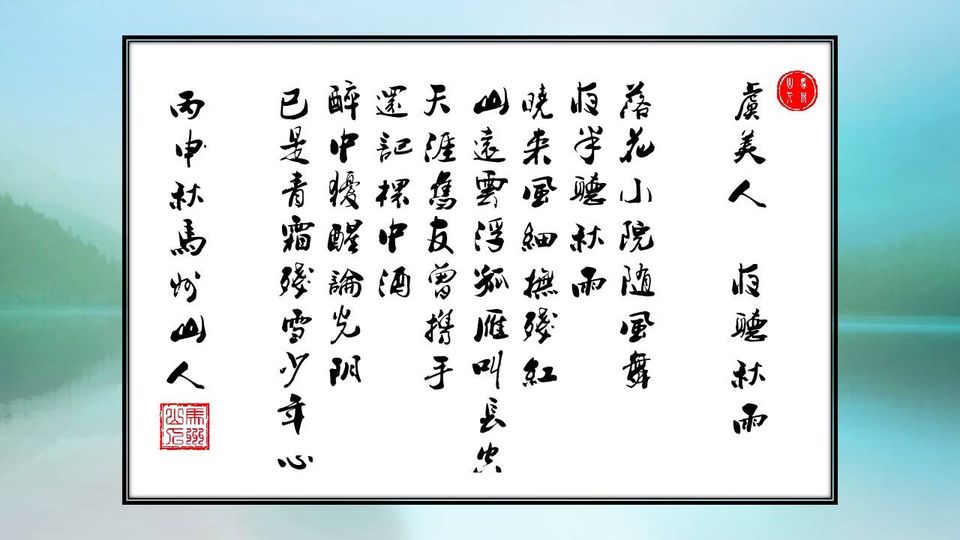 虞美人 夜聽秋雨
落花小院随風舞
夜半聽秋雨
曉来風細撫殘紅
山遠雲浮孤雁叫長空
天涯舊友曾攜手
還記中酒
醉中醒論光阴
已是青霜殘雪少年心
丙申秋馬州山人
馬州山人